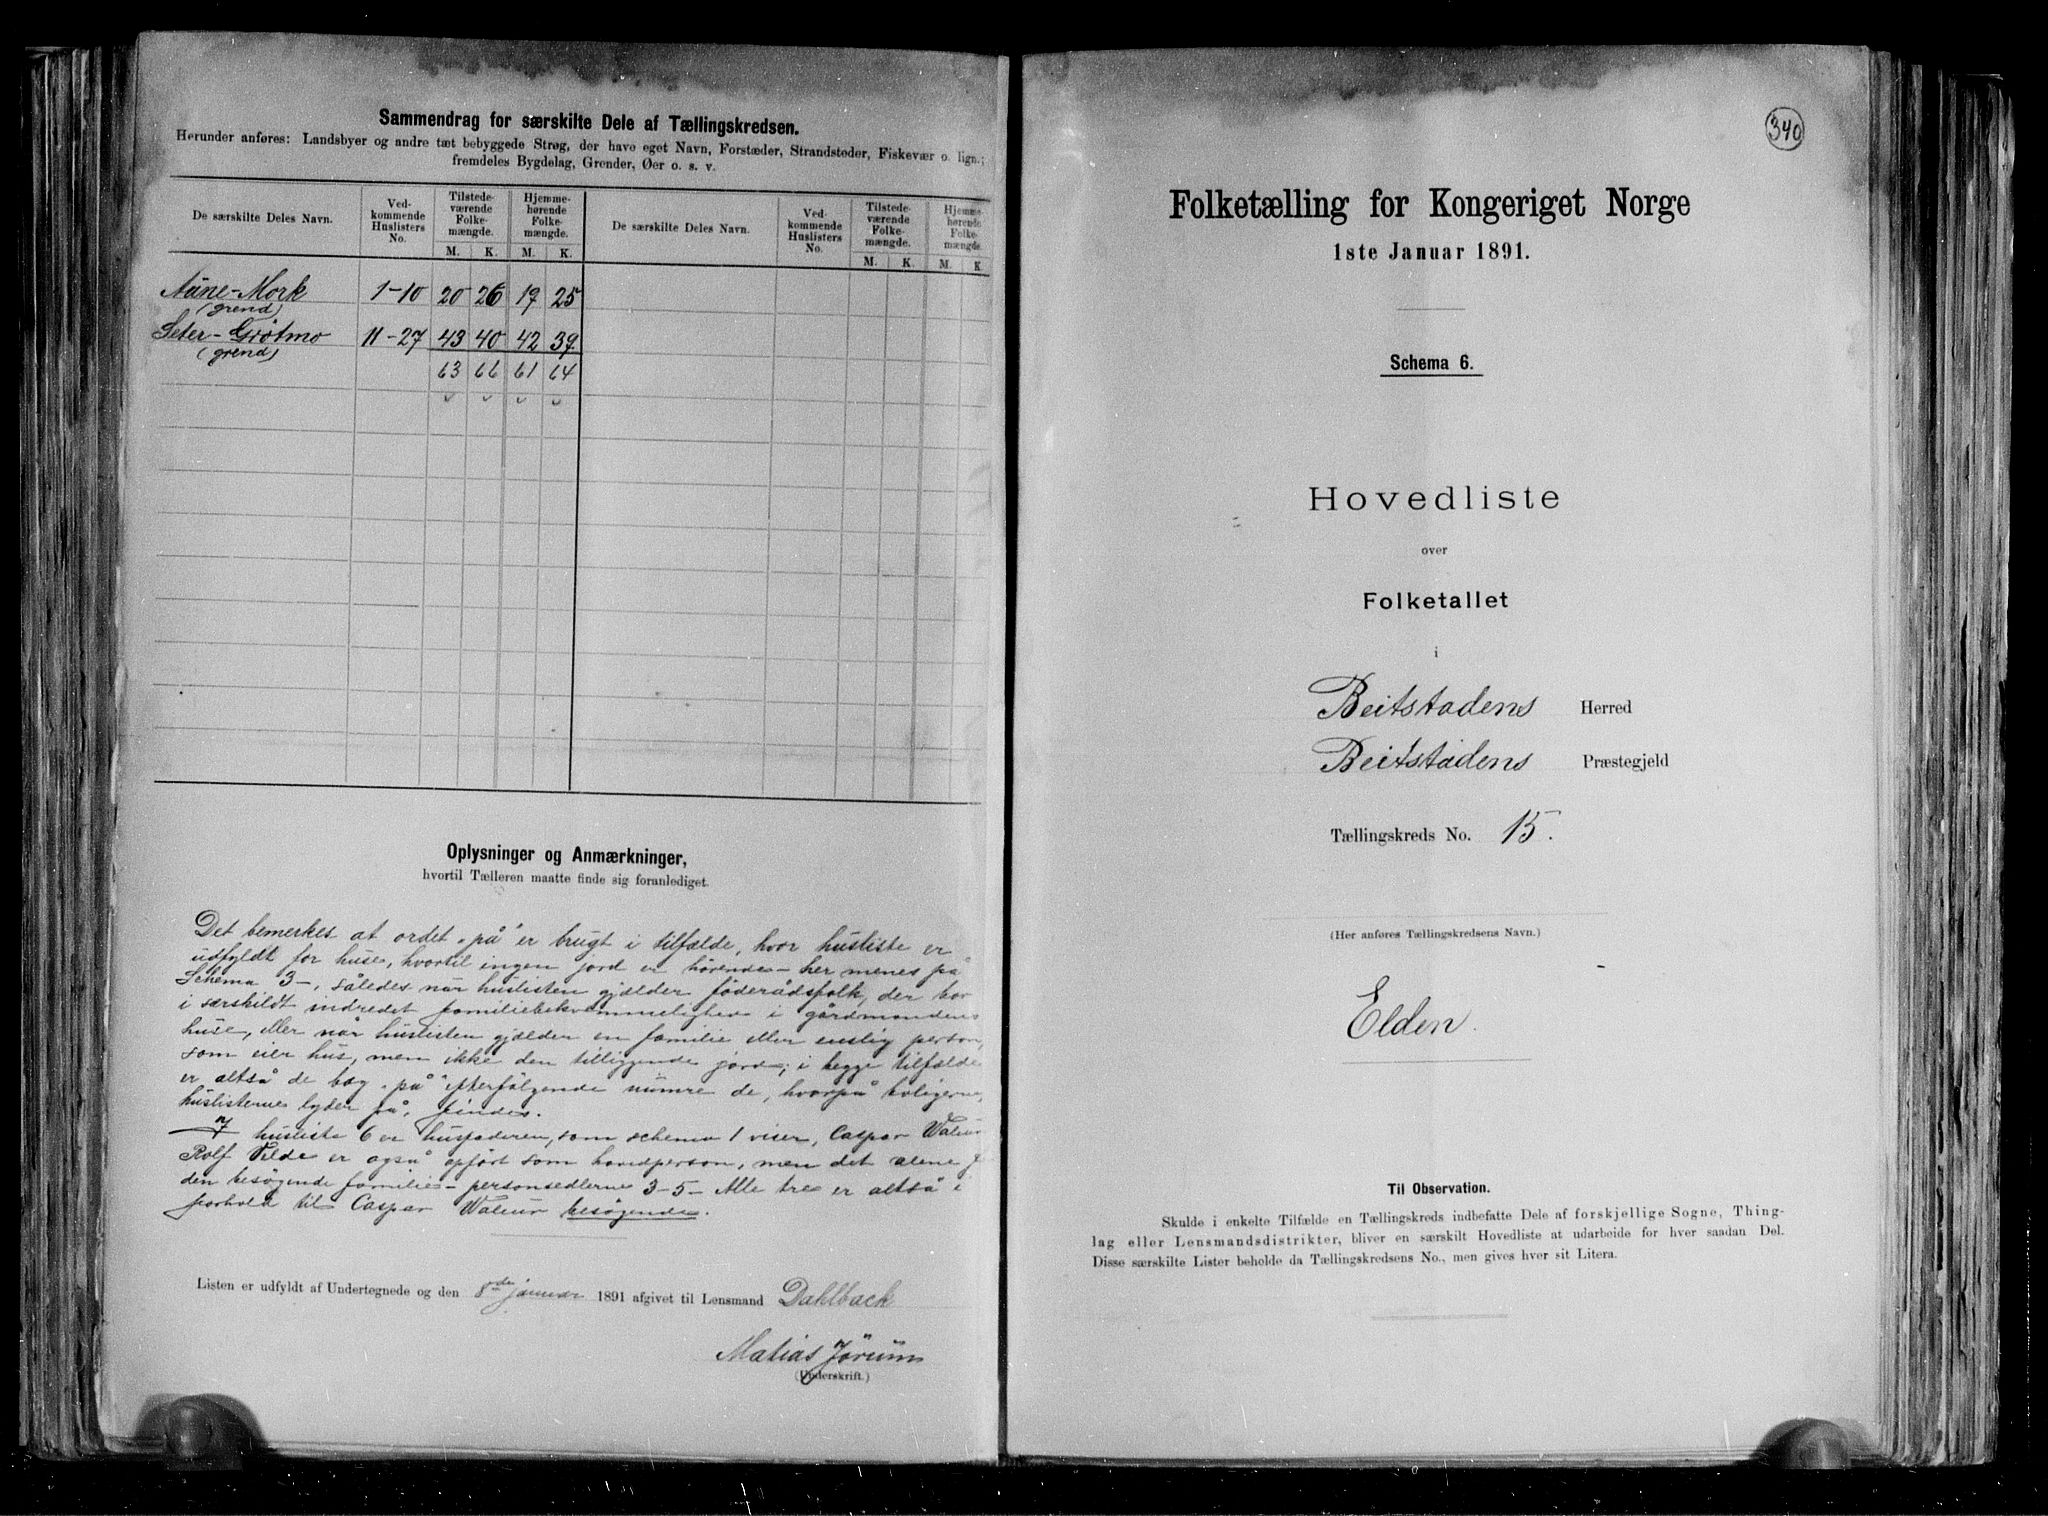 Sammendrag for særskilte Dele af Tællingskredsen.
Herunder anføres: Landsbyer og andre tæt bebyggede Strøg, der have eget Navn, Forstæder, Strandsteder, Fiskevær o. lign.;
fremdeles Bygdelag, Grender, Øer o. s. v.
De særskilte Deles Navn. Ved-kommende Huslisters No. Tilstede-værende Folke-mængde. Hjemme-hørende Folke-mængde. De særskilte Deles Navn. Ved-kommende Huslisters No. Tilstede-værende Folke-mængde. Hjemme-hørende Folke-mængde.
M. K. M. K. M. K. M. K
Aune-Mork 1-10 20 26 19 25
(grend)
Seter-Grøtmo 11-27 43 40 42 39
(grend)
63 66 61 64
Oplysninger og Anmærkninger,
hvortil Tælleren maatte finde sig foranlediget.
Det bemerkes at ordet „på" er brugt i tilfælde, hvor husliste er
udfyldt for huse, hvortil ingen jord er hørende – her menes på
Schema 3 –, således når huslisten gjælder føderådsfolk, der bor
i særskildt indredet familiebekvemmelighed i gårdmandens
huse, eller når huslisten gjælder en familie eller enslig person,
som eier hus, men ikke den tilliggende jord; i begge tilfælde
er altså de bag „på" efterfølgende numre de, hvorpå boligerne,
huslisterne lyder på, findes.
I husliste 6 er husfaderen, som schema 1 viser, Caspar Waleur
Rolf Velde er også opført som hovedperson, men det alene f
den besøgende familie – personsedlerne 3-5 – Alle tre er altså i
forhold til Caspar Waleur besøgende.
Listen er udfyldt af Undertegnede og den 8de januar 1891 afgivet til Lensmand Dahlback
Matias Jørum
(Underskrift.)
340
Folketælling for Kongeriget Norge
1ste Januar 1891.
Schema 6.
Hovedliste
over
Folketallet
i
Beitstadens Herred
Beitstadens Præstegjeld
Tællingskreds No. 15.
(Her anføres Tællingskredsens Navn.)
Elden.
Til Observation.
Skulde i enkelte Tilfælde en Tællingskreds indbefatte Dele af forskjellige Sogne, Thing-
lag eller Lensmandsdistrikter, bliver en særskilt Hovedliste at udarbeide for hver saadan Del.
Disse særskilte Lister beholde da Tællingskredsens No., men gives hver sit Litera.